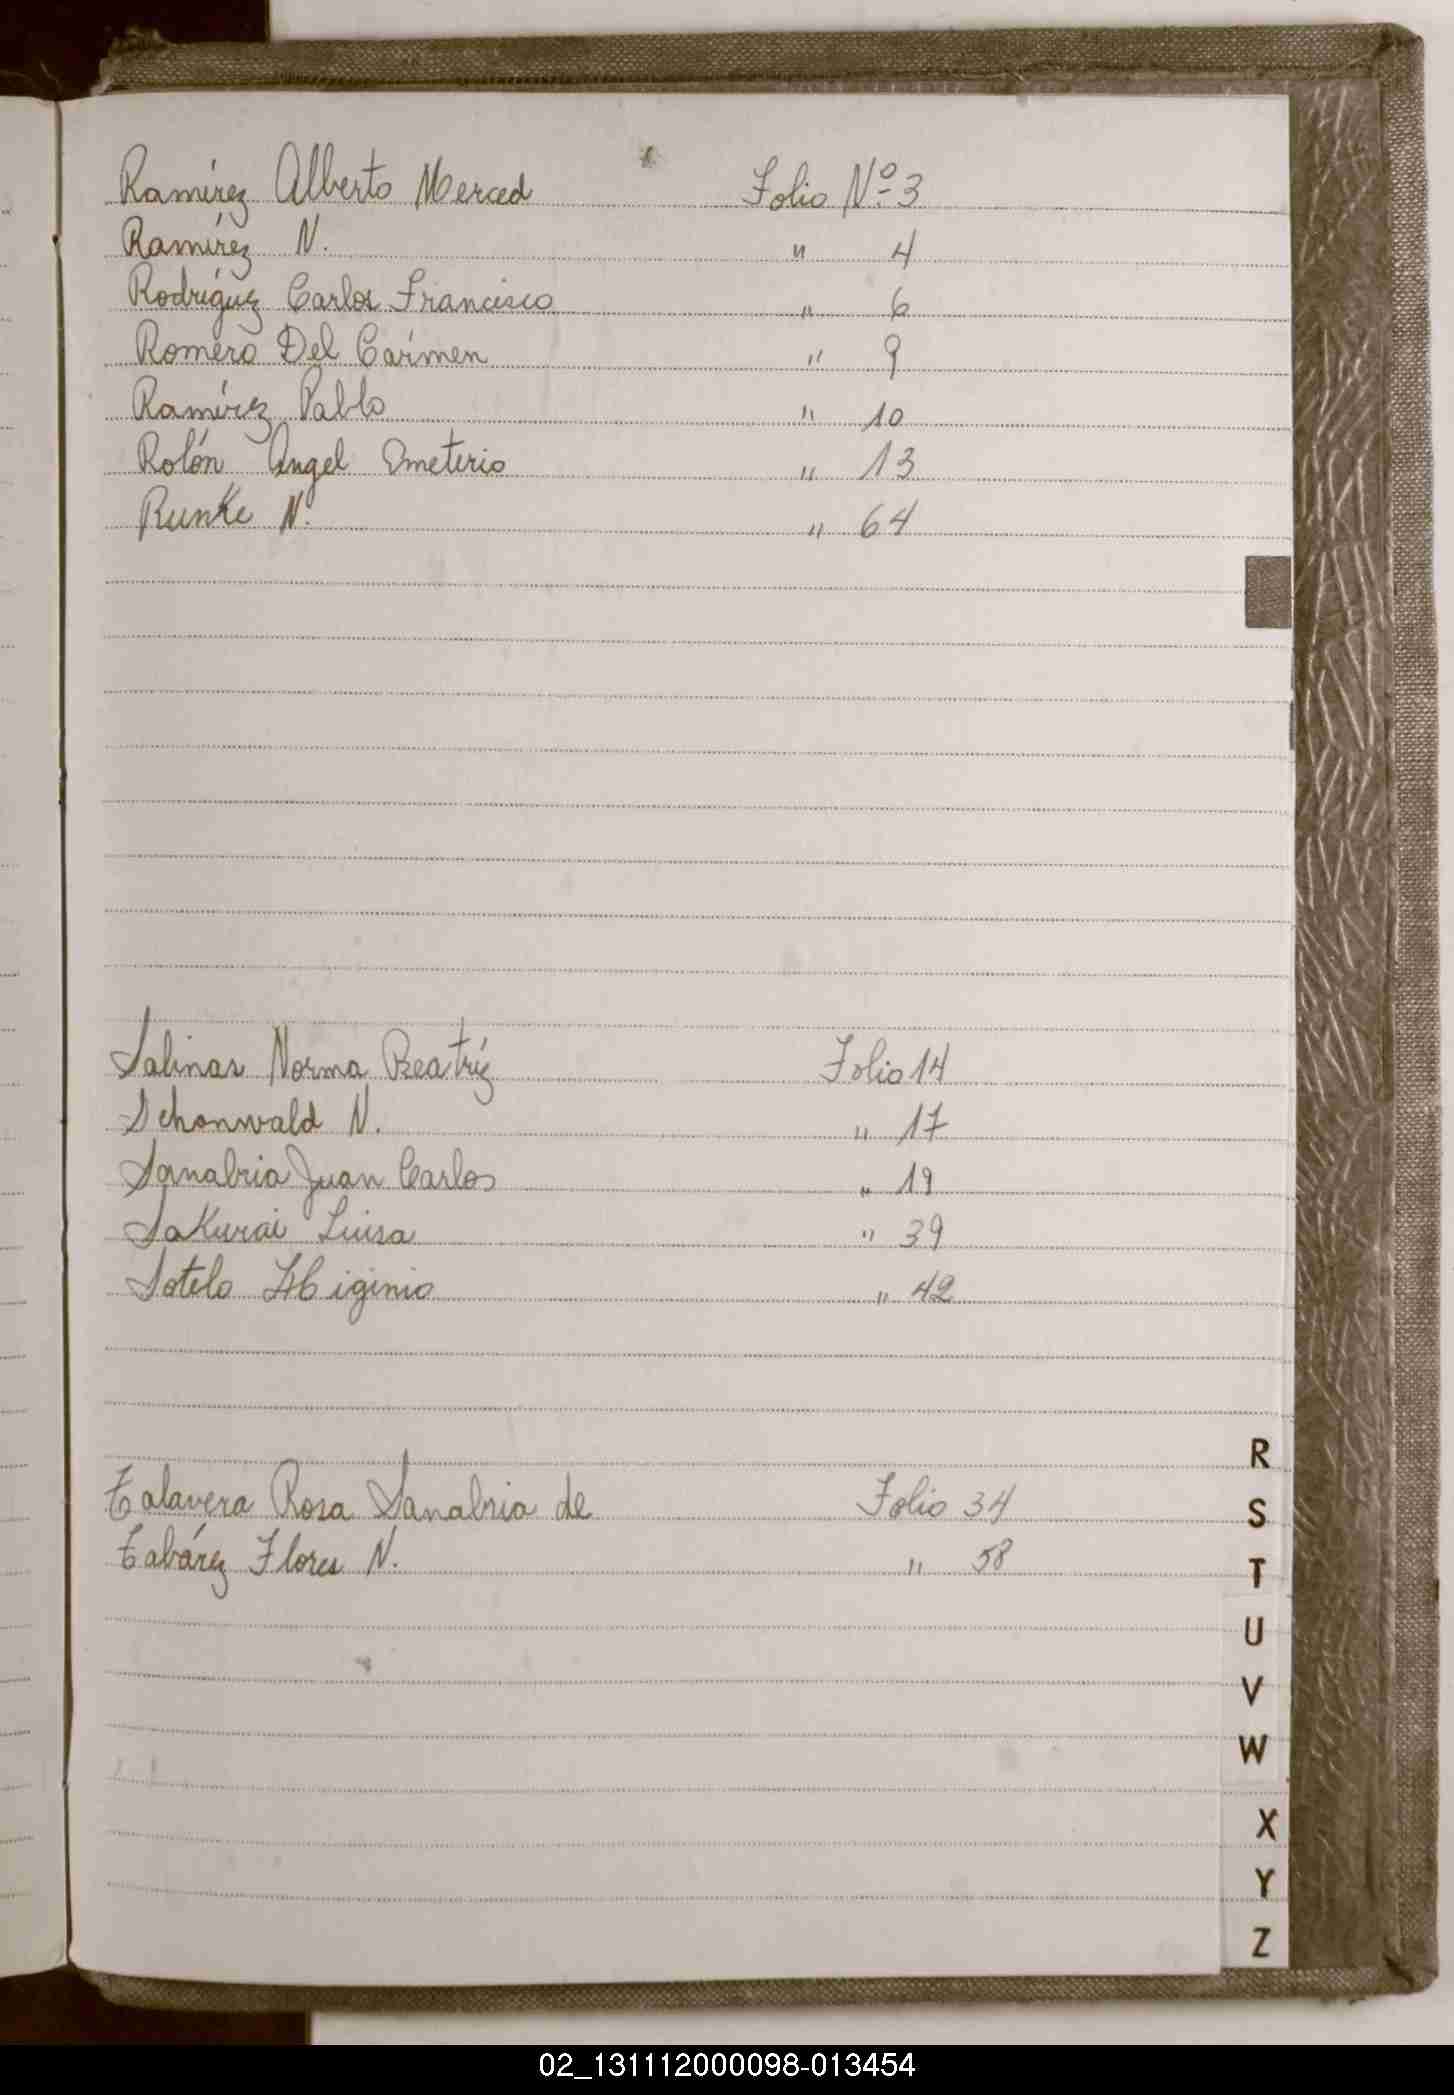 Ramírez Alberto Merced Folio Nº 3
Ramírez N. " 4
Rodríguez Carlos Francisco " 6
Romero Del Carmen " 9
Ramírez Pablo " 10
Rolón Angel Emeterio " 13
Runke N. " 64
Salinas Norma Beatríz Folio 14
Schonwald N. " 17
Sanabria Juan Carlos " 19
Sakurai Luisa " 39
Sotelo Higinio " 42
Talavera Rosa Sanabria de Folio 34
Tabárez Flores N. " 58
R
S
T
U
V
W
X
Y
Z
02_131112000098-013454